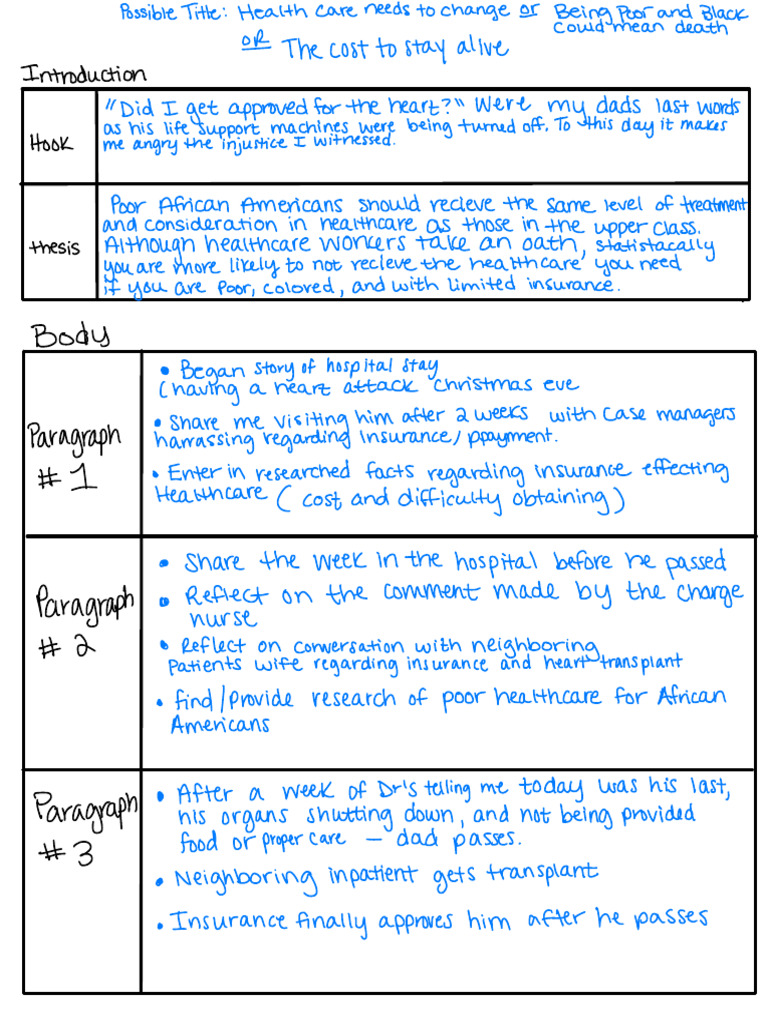 Possible Title: Health care needs to change or Being Poor and Black
Could mean death
OR The cost to stay alive
Introduction
Hook
"Did I get approved for the heart?" Were my dads last words
as his life support machines were being turned off. To this day it makes
me angry the injustice I witnessed.
thesis
Poor African Americans should recieve the same level of treatment
and consideration in healthcare as those in the upper class.
Although healthcare workers take an oath, statistacally
you are more likely to not recieve the healthcare you need
if you are poor, colored, and with limited insurance.
Body
Paragraph
#1
• Began story of hospital stay
(having a heart attack Christmas eve
• Share me visiting him after 2 weeks with case managers
harrassing regarding insurance/ppayment.
• Enter in researched facts regarding insurance effecting
Healthcare (cost and difficulty obtaining)
Paragraph
#2
• Share the week in the hospital before he passed
• Reflect on the comment made by the charge
nurse
• Reflect on conversation with neighboring
Patients wife regarding insurance and heart transplant
• find/Provide research of poor healthcare for African
Americans
Paragraph
#3
• After a week of Dr's telling me today was his last,
his organs shutting down, and not being provided
food or proper care — dad passes.
• Neighboring inpatient gets transplant
• Insurance finally approves him after he passes